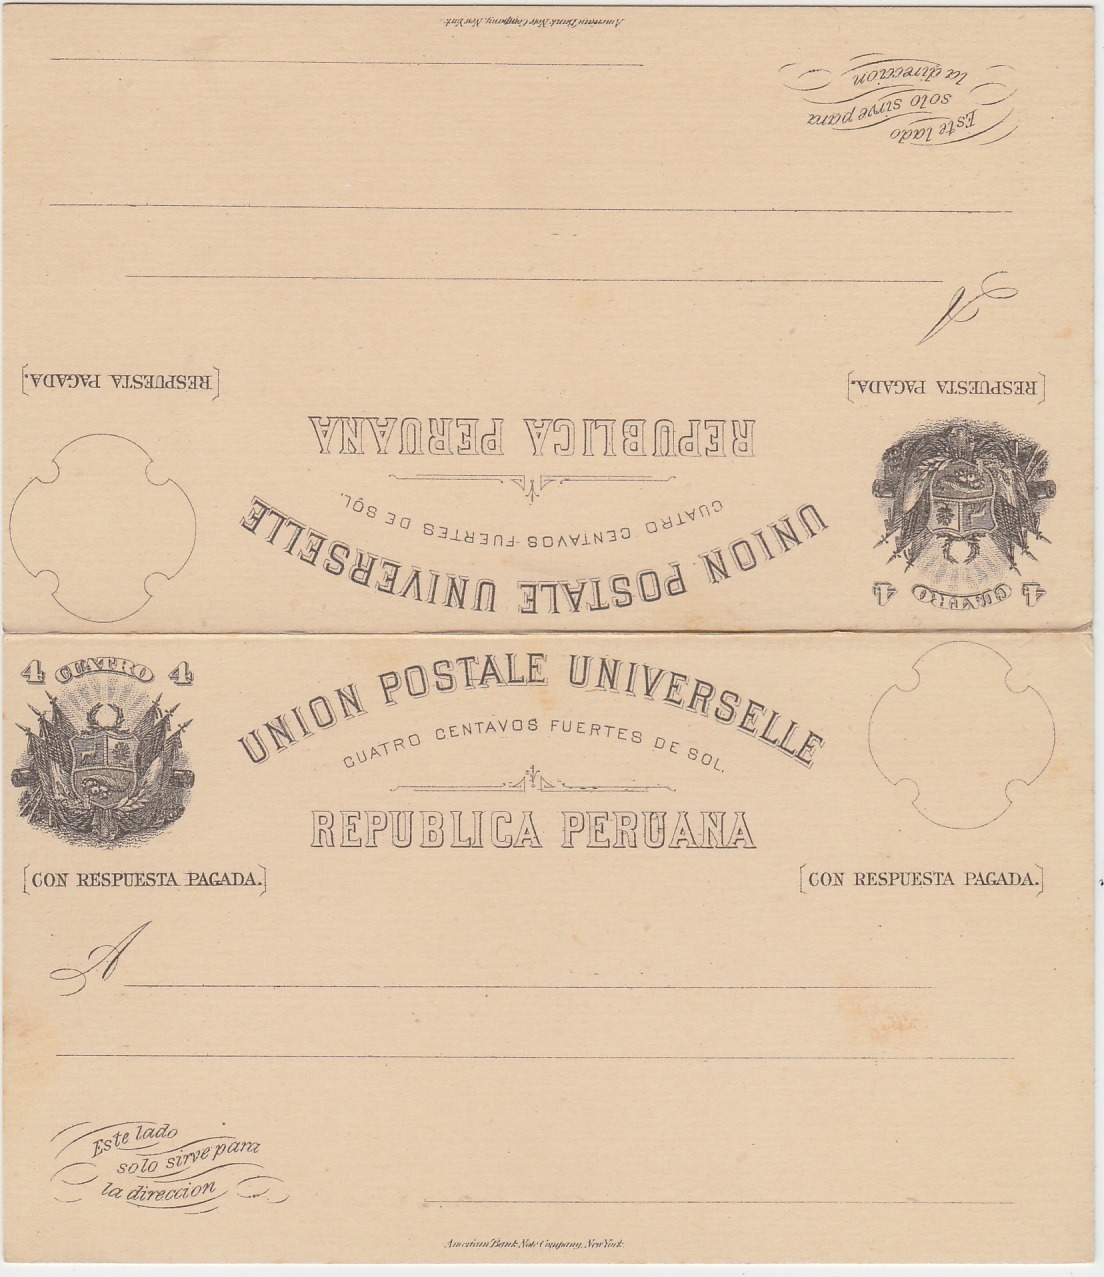 American Bank Note Company, New York.
Este lado
solo sirve para
la direccion
A
[RESPUESTA PAGADA.] [RESPUESTA PAGADA.]
REPUBLICA PERUANA
CUATRO CENTAVOS FUERTES DE SOL.
UNION POSTALE UNIVERSELLE
4 CUATRO 4
4 CUATRO 4
UNION POSTALE UNIVERSELLE
CUATRO CENTAVOS FUERTES DE SOL.
REPUBLICA PERUANA
[CON RESPUESTA PAGADA.] [CON RESPUESTA PAGADA.]
A
Este lado
solo sirve para
la direccion
American Bank Note Company, New York.